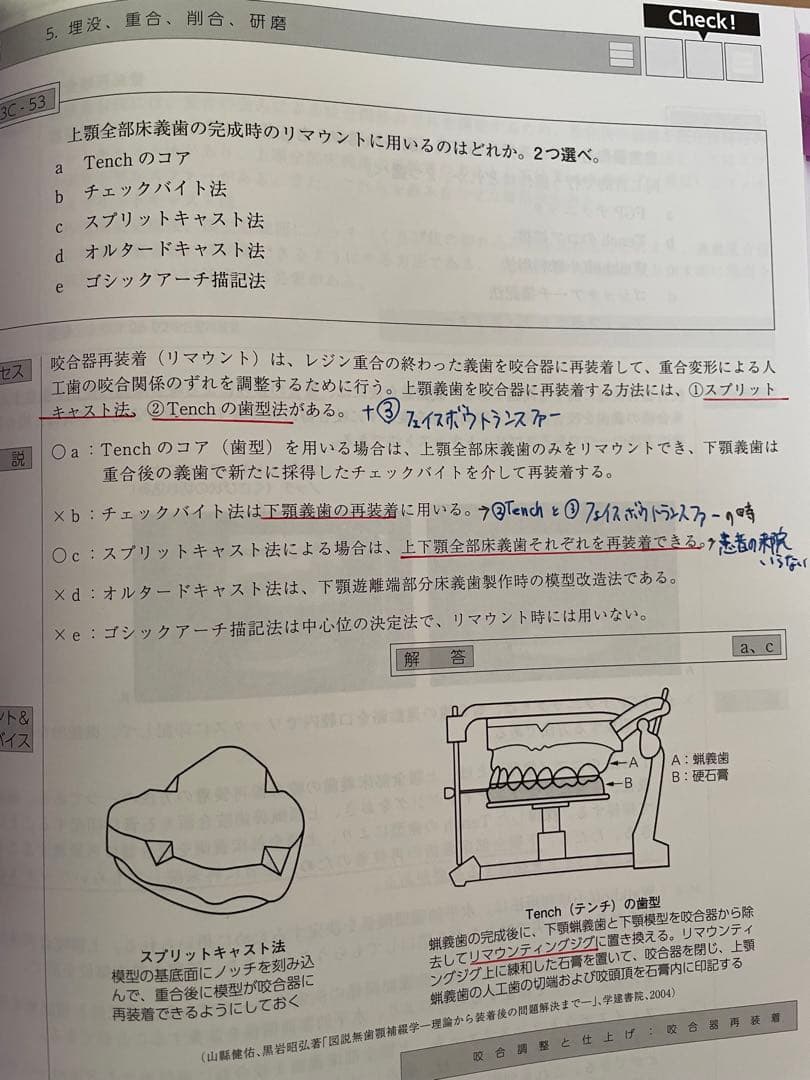 5. 埋没、重合、削合、研磨
Check!
3C-53
上顎全部床義歯の完成時のリマウントに用いるのはどれか。2つ選べ。
a Tenchのコア
b チェックバイト法
c スプリットキャスト法
d オルタードキャスト法
e ゴシックアーチ描記法
セス
咬合器再装着（リマウント）は、レジン重合の終わった義歯を咬合器に再装着して、重合変形による人
工歯の咬合関係のずれを調整するために行う。上顎義歯を咬合器に再装着する方法には、①スプリット
キャスト法、②Tenchの歯型法がある。 +③フェイスボウトランスファー
説
○a：Tenchのコア（歯型）を用いる場合は、上顎全部床義歯のみをリマウントでき、下顎義歯は
重合後の義歯で新たに採得したチェックバイトを介して再装着する。
×b：チェックバイト法は下顎義歯の再装着に用いる。→②Tenchと③フェイスボウトランスファーの時
○c：スプリットキャスト法による場合は、上下顎全部床義歯それぞれを再装着できる。→患者の来院
いらない
×d：オルタードキャスト法は、下顎遊離端部分床義歯製作時の模型改造法である。
×e：ゴシックアーチ描記法は中心位の決定法で、リマウント時には用いない。
解 答
a、c
ント&
バイス
A
B
A：蝋義歯
B：硬石膏
スプリットキャスト法
模型の基底面にノッチを刻み込
んで、重合後に模型が咬合器に
再装着できるようにしておく
Tench（テンチ）の歯型
蝋義歯の完成後に、下顎蝋義歯と下顎模型を咬合器から除
去してリマウンティングジグに置き換える。リマウンティ
ングジグ上に練和した石膏を置いて、咬合器を閉じ、上顎
蝋義歯の人工歯の切端および咬頭頂を石膏内に印記する
（山縣健佑、黒岩昭弘著「図説無歯顎補綴学―理論から装着後の問題解決まで―」、学建書院、2004）
咬合調整と仕上げ：咬合器再装着